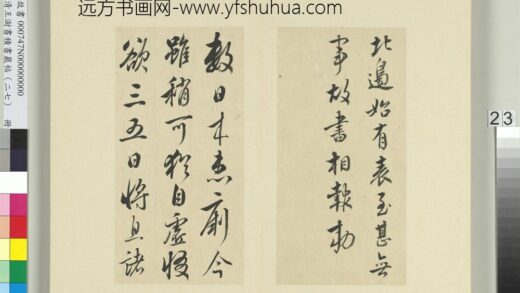 远方书画网-www.yfshuhua.com
北邊始有表至甚無
事故書相報勅
數日来患痢今
雖稍可猶自虛惙
欲三五日將息諸
故書 000747N000000000
清王澍書積書巖帖（二七） 冊
23